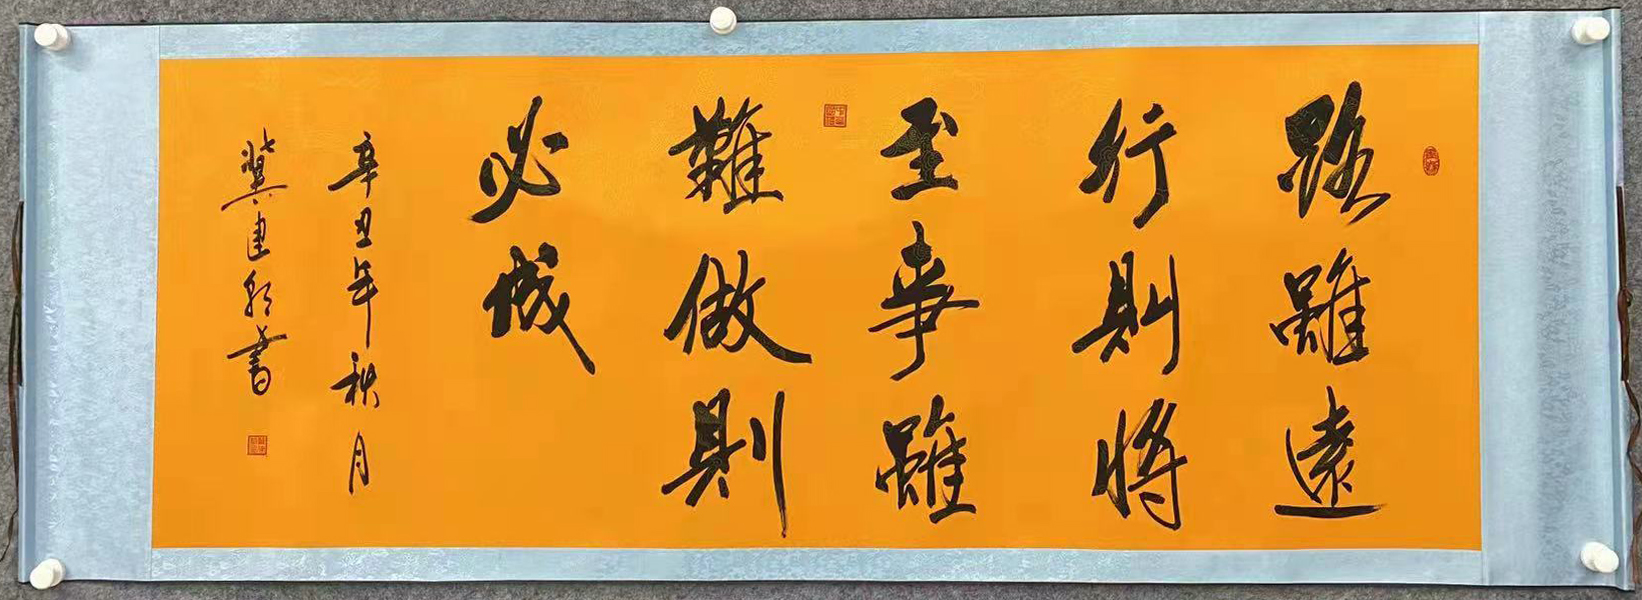 路雖遠
行則將
至事雖
難做則
必成
辛丑年秋月
冀建新書